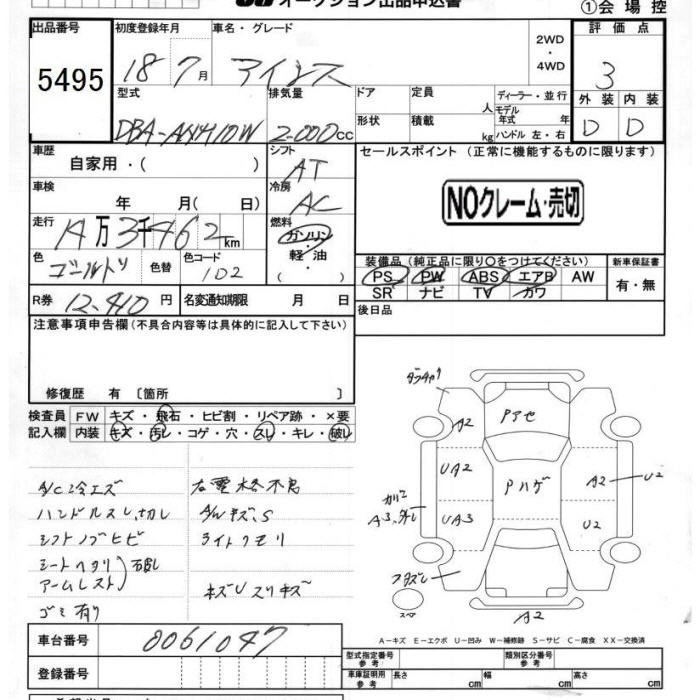 オークション出品申込書
①会場控
出品番号 初度登録年月 車名・グレード 2WD・4WD 評価点
5495 18 7月 アイシス 3
型式 排気量 ドア 定員 人 ディーラー・並行 外装 内装
DBA-ANM10W 2000cc 形状 積載 kg モデル年式 年式 ハンドル 左・右 D D
車歴 シフト セールスポイント（正常に機能するものに限ります）
自家用・( ) AT
車検 冷房 NOクレーム・売切
年 月( 日) AC
走行 燃料
14万3千462km ガソリン・軽油
色 色替 色コード 装備品（純正品に限り○をつけてください） 新車保証書
ゴールド 1D2 PS PW ABS エアB AW 有・無
R券 12,410円 名変通知期限 月 日 SR ナビ TV カワ
注意事項申告欄（不具合内容等は具体的に記入して下さい） 後日品
修復歴 有 〔箇所 〕
検査員 FW キズ・飛石・ヒビ割・リペア跡・×要
記入欄 内装 キズ・汚レ・コゲ・穴・スレ・キレ・破レ
A/C冷エズ
ハンドルスレ,切レ
シフトノブヒビ
シートヘタリ
アームレスト
破レ
ゴミ有り
右電格不良
A/Wキズ,S
ライトクモリ
キズUスリキズ
A2 Pアセ
UA2 Pハゲ A2 U2
A3,外レ UA3 U2
スペア
A2
A－キズ E－エクボ U－凹み W－補修跡 S－サビ C－腐食 XX－交換済
車台番号 0061047 型式指定番号 参考 類別区分番号 参考
登録番号 車庫証明用 参考 長さ cm 幅 cm 高さ cm